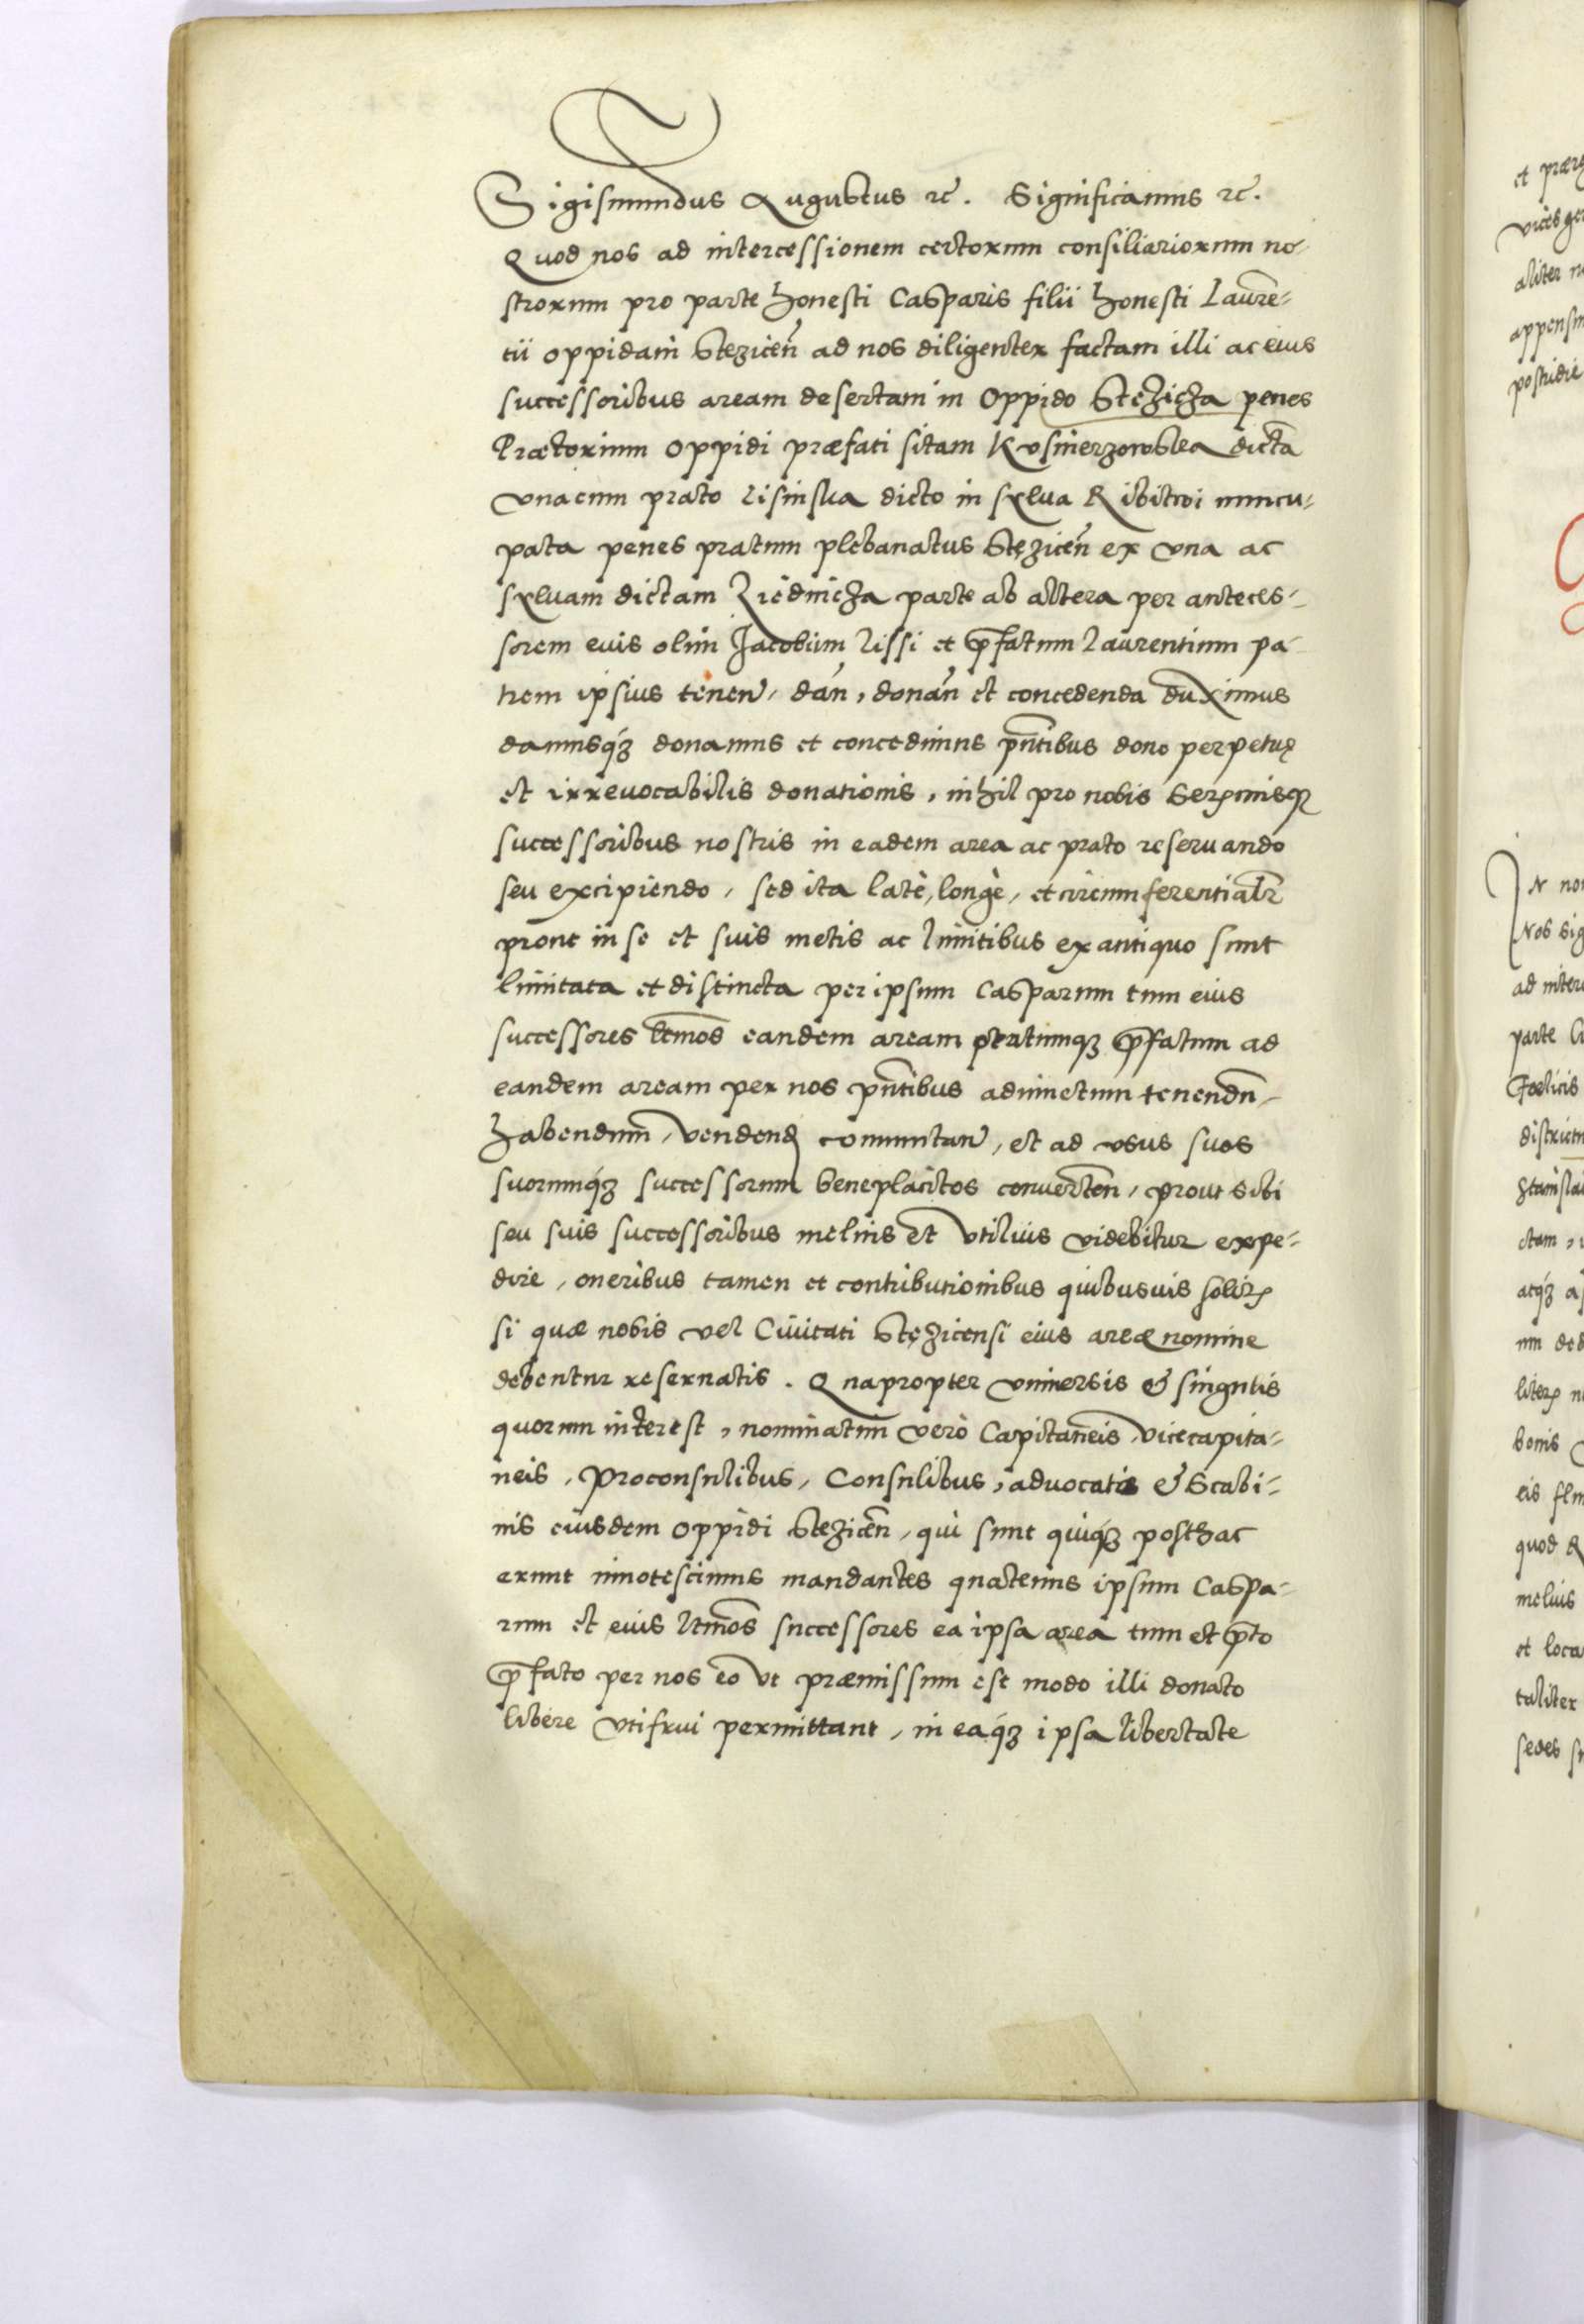 Sigismundus Augustus etc. Significamus etc.
Quod nos ad intercessionem certorum consiliariorum no-
strorum pro parte honesti Casparis filii honesti Laure͞-
tii oppidani Stezicen̄ ad nos diligenter factam illi ac eius
successoribus aream desertam in Oppido Stezicza penes
Prætorium Oppidi præfati sitam Kusmierzowska dicta͞
vnacum prato lisinska dicto in sylua Ribitwi nuncu-
pata penes pratum plebanatus Stęzicen̄ ex vna ac
syluam dictam Ziednicza parte ab altera per anteces-
sorem euis olim Jacobum lissi et p̄fatum Laurentium pa-
trem ipsius tenen̄, dan̄, donan̄ et concedenda duximus
damusq́ꝫ donamus et concedimus pn̄tibus dono perpetuę
et irreuocabilis donationis, nihil pro nobis Serꝫmisqꝫ
successoribus nostris in eadem area ac prato reseruando
seu excipiendo, sed ita latè, longè, et circumferentialr̄
prout in se et suis metis ac limitibus ex antiquo sunt
limitata et distincta per ipsum Casparum tum eius
successores ltm̄os eandem aream pratumqꝫ p̄fatum ad
eandem aream per nos pn̄tibus adiunctum tenendn̄,
habendum, vendend̄ comutan̄, et ad vsus suos
suorumq́ꝫ successorum beneplacitos conuerten̄, prout sibi
seu suis successoribus melius et vtiluis videbitur expe-
dire, oneribus tamen et contributionibus quibusuis solitꝫ
si quæ nobis vel Ciuitati Stęzicensi eius areæ nomine
debentur reseruatis. Quapropter vniuersis & singulis
quorum interest, nominatim verò Capitaneis, vicecapita-
neis, Proconsulibus, Consulibus, aduocatis & Scabi-
nis eiusdem Oppidi Stezicen̄, qui sunt quiq́ꝫ posthac
erunt innotescimus mandantes quatenus ipsum Caspa-
rum et eius ltm̄os successores ea ipsa area tum et p̄to
p̄fato per nos eo vt præmissum est modo illi donato
libere vtifrui permittant, in eaq́ꝫ ipsa libertate
et præ
vices
aliter
postridie
Nos sig
ad inter
parte
Fœlicis
Stanisla
ctam,
bonis
quod
melius
et loca
taliter
sedes